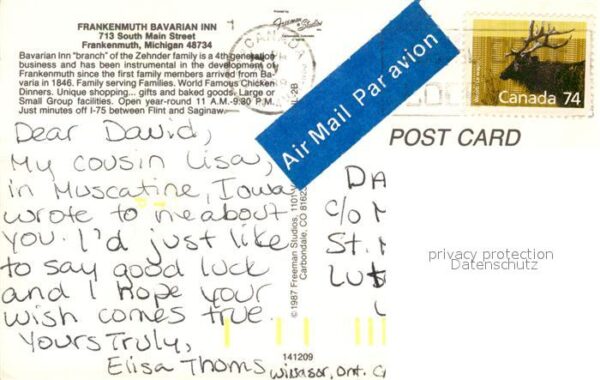 FRANKENMUTH BAVARIAN INN
713 South Main Street
Frankenmuth, Michigan 48734
Bavarian Inn "branch" of the Zehnder family is a 4th generation
business and has been instrumental in the development of
Frankenmuth since the first family members arrived from Ba-
varia in 1846. Family serving Families. World Famous Chicken
Dinners. Unique shopping... gifts and baked goods. Large or
Small Group facilities. Open year-round 11 A.M.-9:30 P.M.
Just minutes off I-75 between Flint and Saginaw.
Dear David,
My cousin Lisa,
in Muscatine, Iowa
wrote to me about
you. I'd just like
to say good luck
and I hope your
wish comes true.
Yours Truly,
Elisa Thoms
Windsor, Ont.
141209
Freeman Studios
© 1987 Freeman Studios,
Carbondale, CO
CANADA
Air Mail Par avion
Canada 74
POST CARD
DA
c/o M
St.
privacy protection
Datenschutz